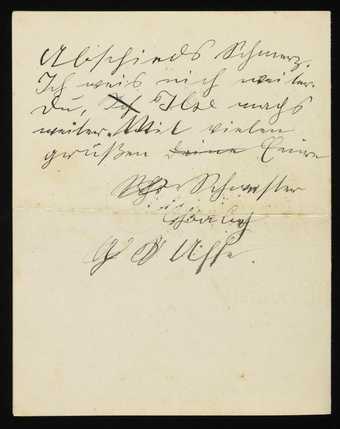 Abschieds Schmerz.
Ich weis nich weiter.
Du, Ilse machs
weiter. Mit vielen
grüßen deine Eure
Schwester
Affe.